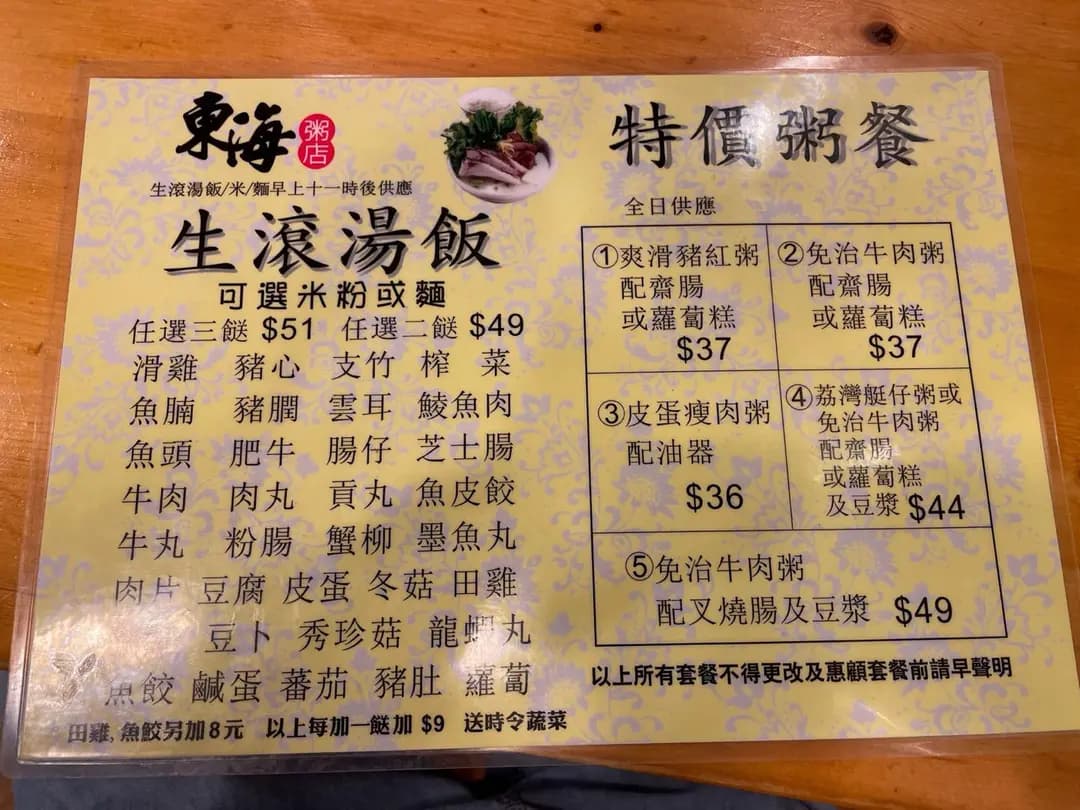 東海 粥店
生滾湯飯/米/麵早上十一時後供應
生滾湯飯
可選米粉或麵
任選三餸 $51 任選二餸 $49
滑雞 豬心 支竹 榨菜
魚腩 豬膶 雲耳 鯪魚肉
魚頭 肥牛 腸仔 芝士腸
牛肉 肉丸 貢丸 魚皮餃
牛丸 粉腸 蟹柳 墨魚丸
肉片 豆腐 皮蛋 冬菇 田雞
豆卜 秀珍菇 龍蝦丸
魚餃 鹹蛋 蕃茄 豬肚 蘿蔔
田雞,魚餃另加8元 以上每加一餸加 $9 送時令蔬菜
特價粥餐
全日供應
①爽滑豬紅粥
配齋腸
或蘿蔔糕
$37
②免治牛肉粥
配齋腸
或蘿蔔糕
$37
③皮蛋瘦肉粥
配油器
$36
④荔灣艇仔粥或
免治牛肉粥
配齋腸
或蘿蔔糕
及豆漿 $44
⑤免治牛肉粥
配叉燒腸及豆漿 $49
以上所有套餐不得更改及惠顧套餐前請早聲明